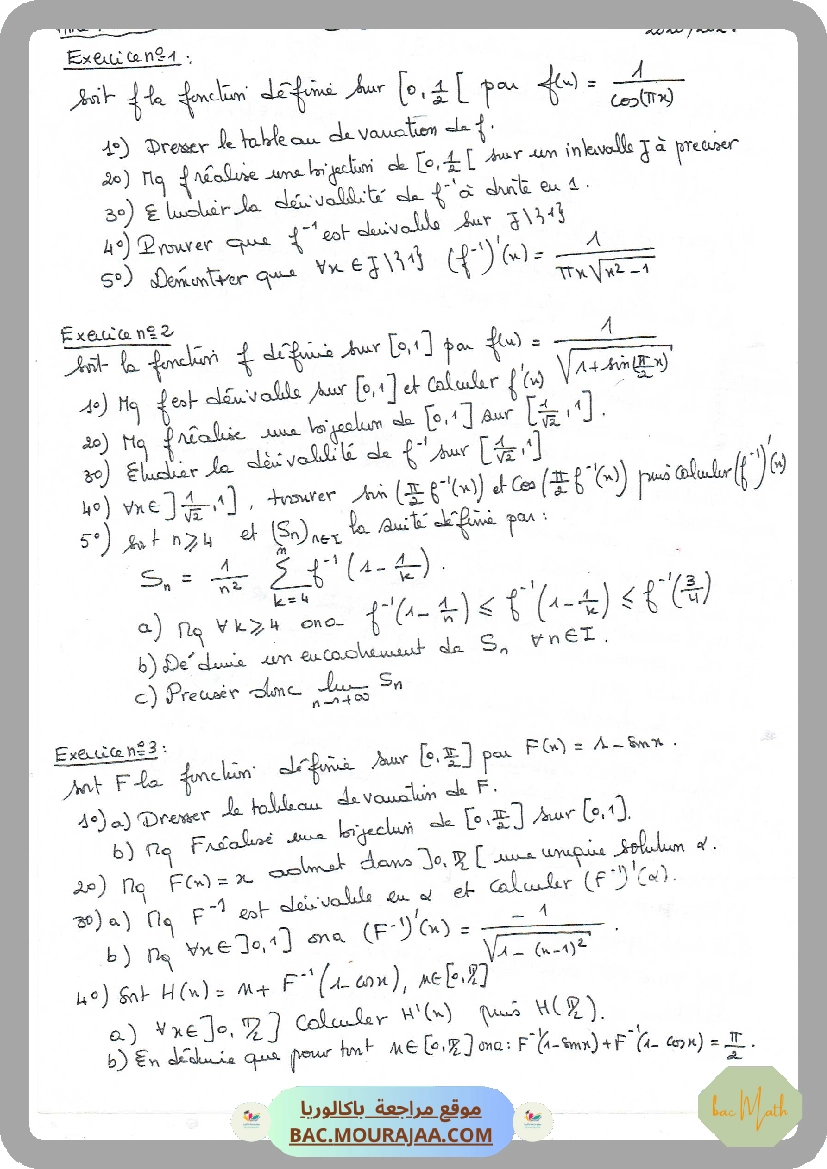 Exercice n°1 :
Soit f la fonction définie sur [0, 1/2 [ par f(x) = 1/cos(πx)
1°) Dresser le tableau de variation de f.
2°) Mq f réalise une bijection de [0, 1/2 [ sur un intervalle J à preciser
3°) Etudier la dérivabilité de f⁻¹ à droite en 1.
4°) Prouver que f⁻¹ est derivable sur J\{1}
5°) Démontrer que ∀x ∈ J\{1} (f⁻¹)'(x) = 1/(πx√(x²-1))
Exercice n°2
Soit la fonction f définie sur [0,1] par f(x) = 1/√(1+sin(π/2 x))
1°) Mq f est dérivable sur [0,1] et calculer f'(x)
2°) Mq f réalise une bijection de [0,1] sur [1/√2, 1].
3°) Etudier la dérivabilité de f⁻¹ sur [1/√2, 1]
4°) ∀x ∈ ]1/√2, 1], trouver sin(π/2 f⁻¹(x)) et cos(π/2 f⁻¹(x)) puis calculer (f⁻¹)'(x)
5°) Soit n ⩾ 4 et (Sn)n∈I la suite définie par :
Sn = 1/n² Σ_{k=4}^{n} f⁻¹(1 - 1/k).
a) Mq ∀ k ⩾ 4 ona f⁻¹(1 - 1/n) ≤ f⁻¹(1 - 1/k) ≤ f⁻¹(3/4)
b) Déduire un encadrement de Sn ∀n ∈ I.
c) Preciser donc lim n→+∞ Sn
Exercice n°3 :
Soit F la fonction définie sur [0, π/2] par F(x) = 1 - sinx.
1°) a) Dresser le tableau de variation de F.
b) Mq F réalise une bijection de [0, π/2] sur [0,1].
2°) Mq F(x) = x admet dans ]0, π/2[ une unique solution α.
3°) a) Mq F⁻¹ est dérivable en α et calculer (F⁻¹)'(α).
b) Mq ∀x ∈ ]0,1] ona (F⁻¹)'(x) = -1/√(1-(x-1)²).
4°) Soit H(x) = x + F⁻¹(1-cosx), x ∈ [0, π/2]
a) ∀x ∈ ]0, π/2] calculer H'(x) puis H(π/2).
b) En déduire que pour tout x ∈ [0, π/2] ona : F⁻¹(1-sinx) + F⁻¹(1-cosx) = π/2.
موقع مراجعة باكالوريا
BAC.MOURAJAA.COM
bac Math